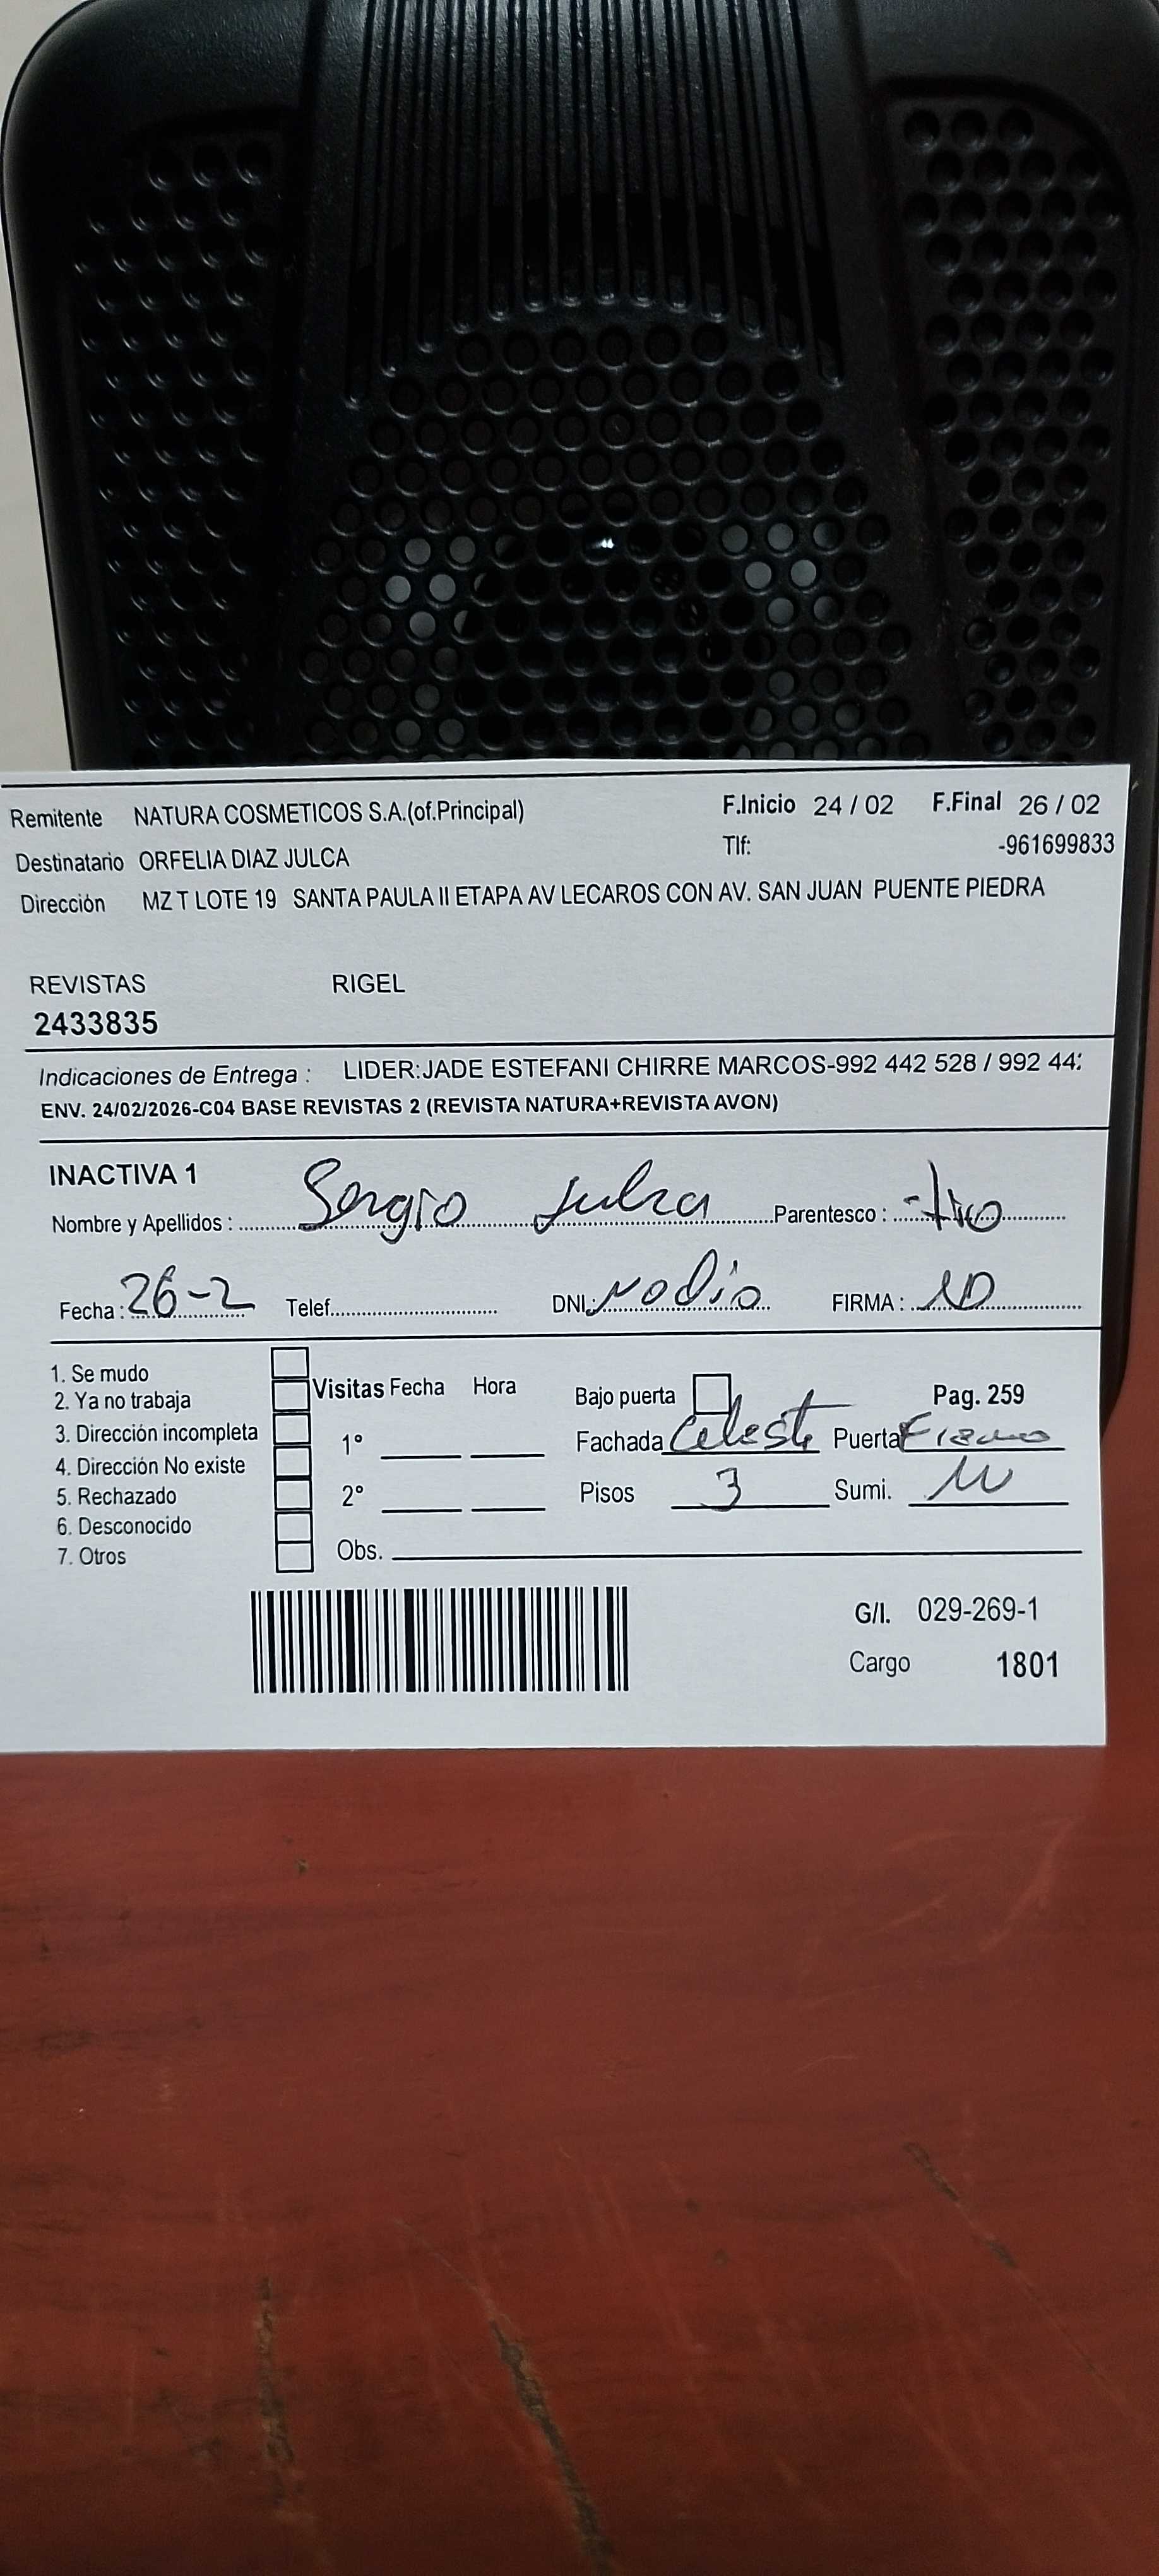 Remitente NATURA COSMETICOS S.A.(of.Principal) F.Inicio 24 / 02 F.Final 26 / 02
Destinatario ORFELIA DIAZ JULCA Tlf: -961699833
Dirección MZ T LOTE 19 SANTA PAULA II ETAPA AV LECAROS CON AV. SAN JUAN PUENTE PIEDRA
REVISTAS RIGEL
2433835
Indicaciones de Entrega : LIDER:JADE ESTEFANI CHIRRE MARCOS-992 442 528 / 992 44
ENV. 24/02/2026-C04 BASE REVISTAS 2 (REVISTA NATURA+REVISTA AVON)
INACTIVA 1
Nombre y Apellidos : Sergio Julca Parentesco : tio
Fecha : 26-2 Telef. DNI: no dio FIRMA :
1. Se mudo
2. Ya no trabaja Visitas Fecha Hora Bajo puerta Pag. 259
3. Dirección incompleta 1° Fachada Celeste Puerta
4. Dirección No existe
5. Rechazado 2° Pisos 3 Sumi.
6. Desconocido
7. Otros Obs.
G/I. 029-269-1
Cargo 1801